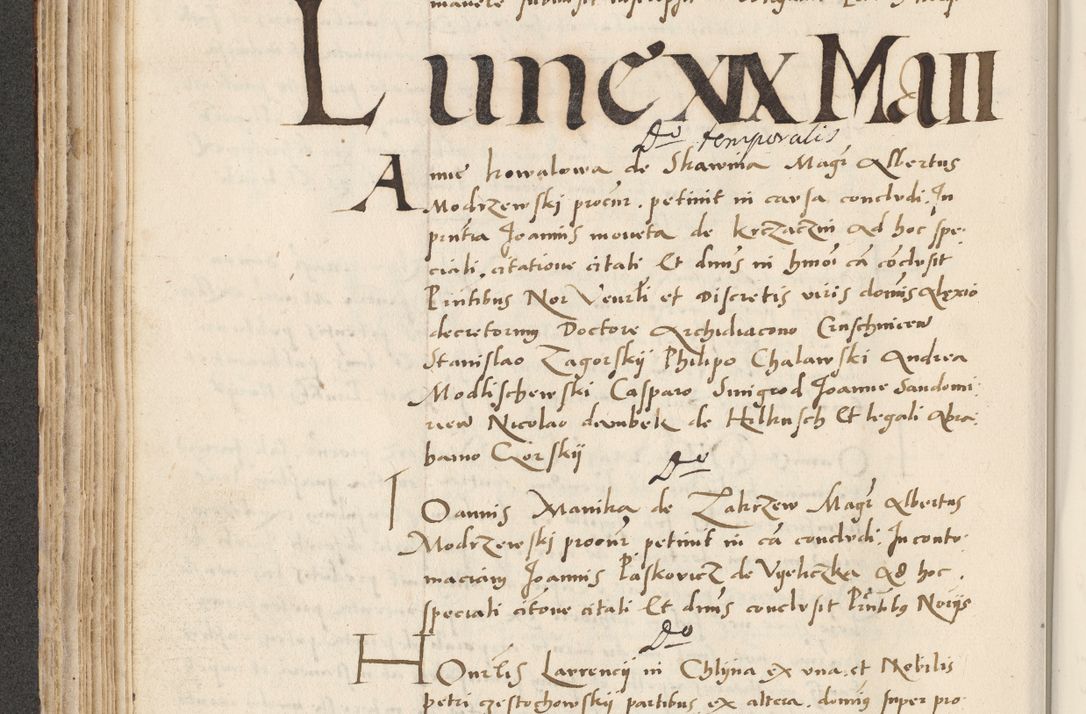 Lune XIX Maii
Do temporalis
Anne kowalowa de Skawina Magr Albertus
Modrzewskj procur. petiuit in causa concludi. In
pntia Joannis moneta de krczaczin ad hoc spe-
ciali, citatione citati Et dnus in hmoi ca coclusit
Pntibus Nor Venrli et Discretis viris dominis Alexio
decretorum Doctore Archidiacono Cruschwicen
Stanislao Zagorskij Philipo Chalawski Andrea
Modlischewski Casparo Smigrod Joanne Sandomi-
rien Nicolao dambek de Hilkusch Et legali Abra-
hamo Gorskij
Do
Joannis Manika de Zakrzew Magr Albertus
Modrzewskj procur petiuit in ca concludi. In contu-
maciam Joannis Paskovicz de Vyeliczka ad hoc.
speciali citone citati Et dnus conclusit Pntibus Noriis
Do
Honrlis Laurencij in Chlyna ex vna, et Nobilis
petri czestochowskij partibus ex altera, dominus super pro-